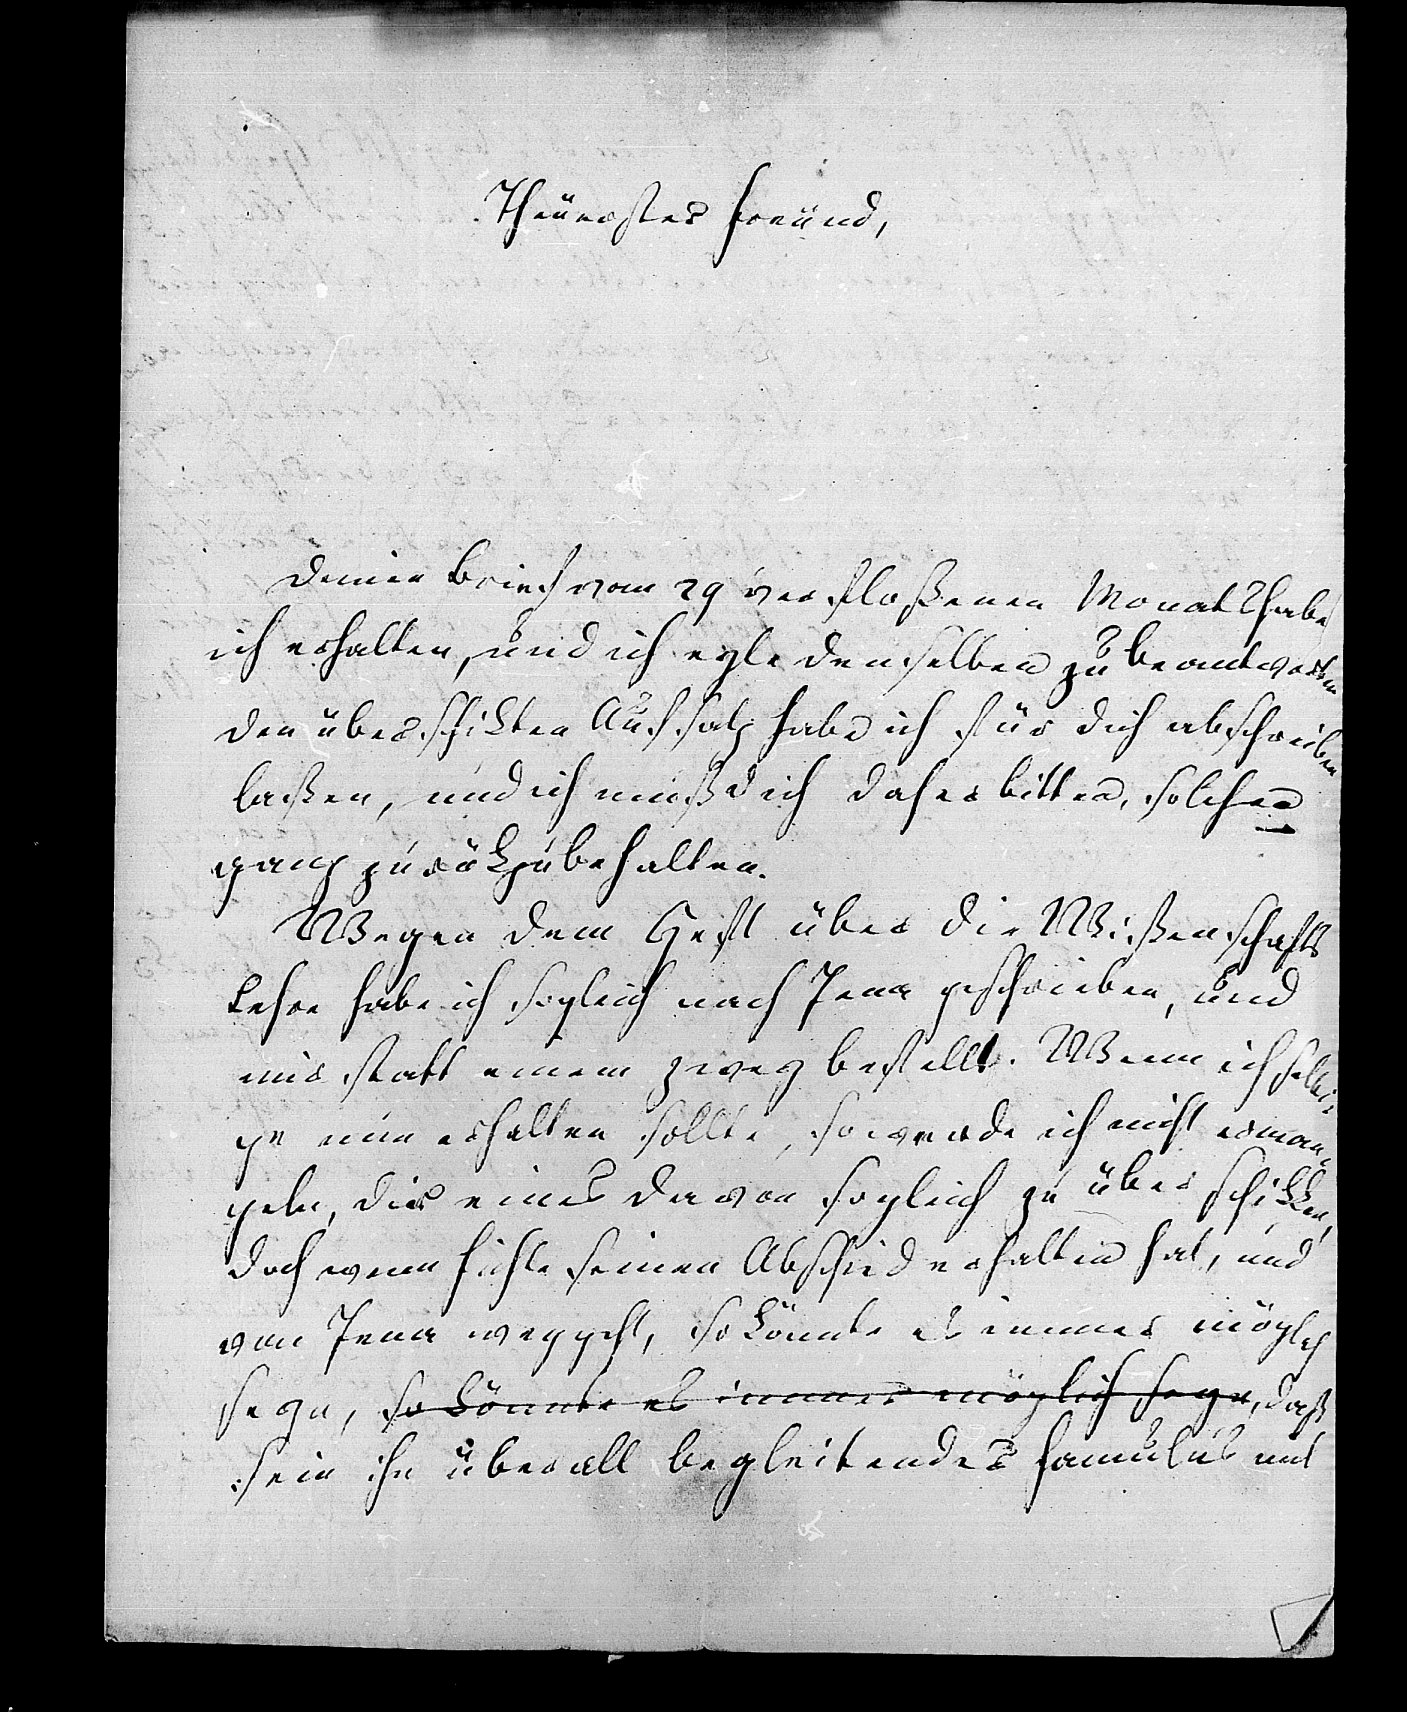 Theüerster Freünd,
Deinen Brief vom 29 verfloßenen Monats habe
ich erhalten, und ich eyle denselben zu beantworten
den überschikten Aufsatz habe ich für dich abschreiben
laßen, und ich muß dich daher bitten, solchen
ganz zurükzubehalten.
Wegen dem Heft über die Wißenschafts
Lehre habe ich sogleich nach Jena geschrieben, und
mir statt einem zwey bestellt. Wenn ich selbi-
ge nun erhalten sollte, so werde ich nicht erman-
geln, dir eines davon sogleich zu überschikken,
doch wenn Fichte seinen Abschied erhalten hat, und
von Jena weggeht, so könnte es immer möglich
seyn, so könnte es immer möglich seyn, daß
sein ihn überall begleitender Famulus mit